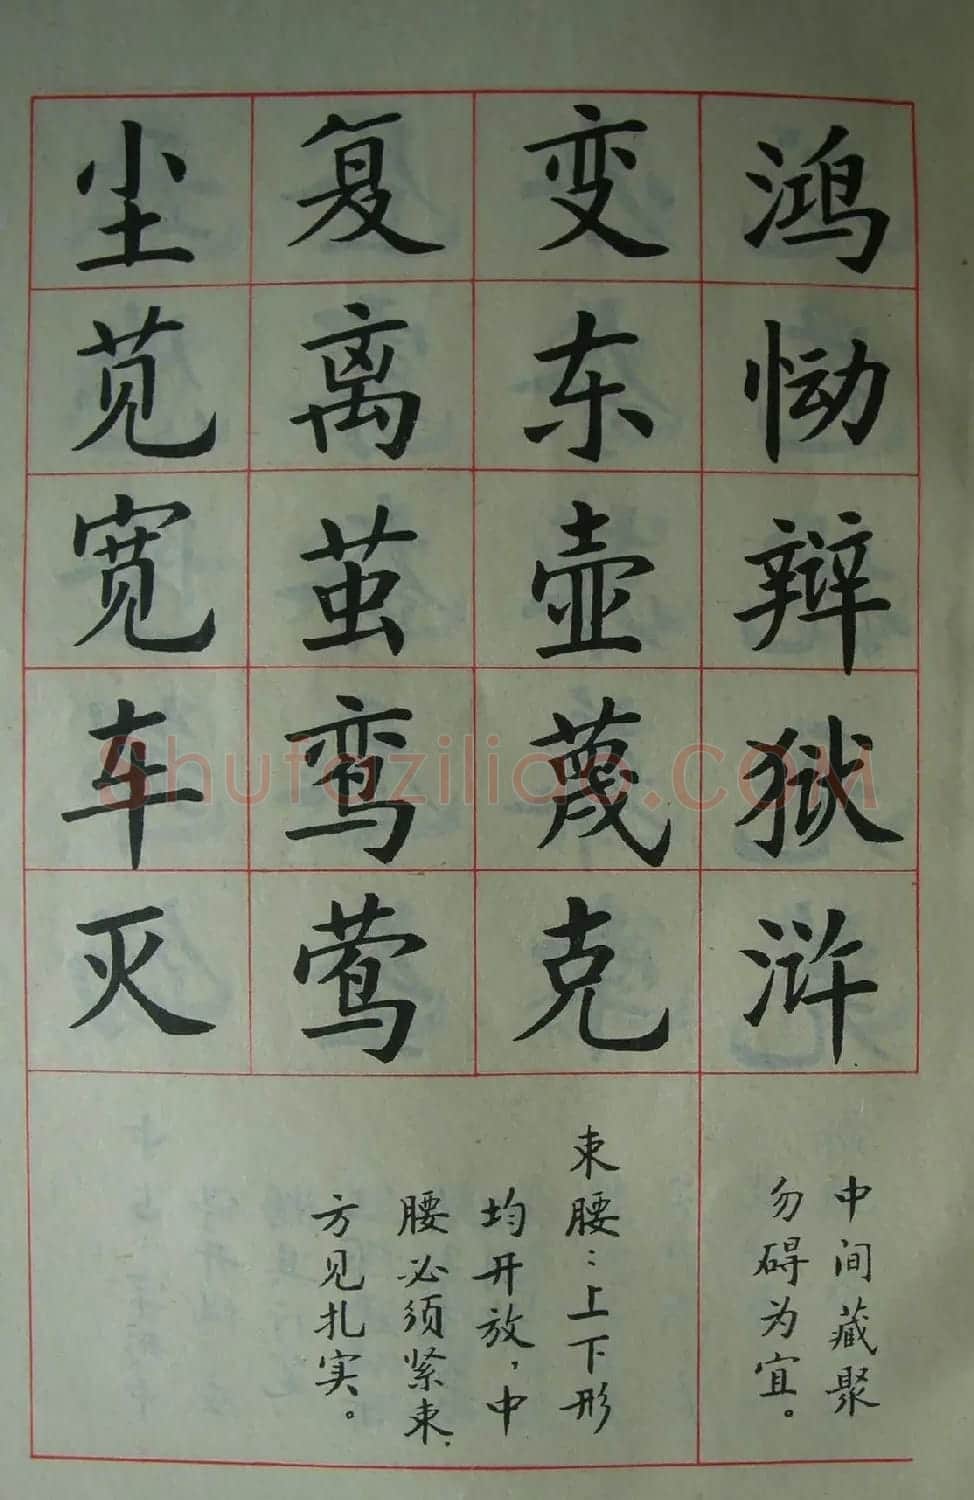 鸿恸辩狱浒
变东壶蔑克
复离茧鸾莺
尘苋宽车灭
中间藏聚
勿碍为宜。
束腰：上下形
均开放，中
腰必须紧束，
方见扎实。
Shufaziliao.COM